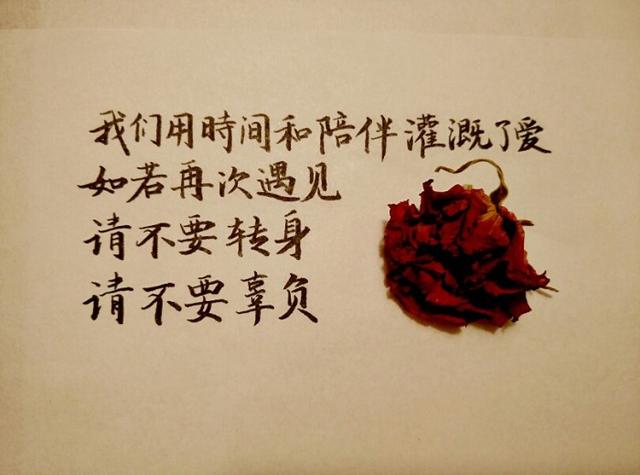 我们用時间和陪伴灌溉了爱
如若再次遇见
请不要转身
请不要辜负